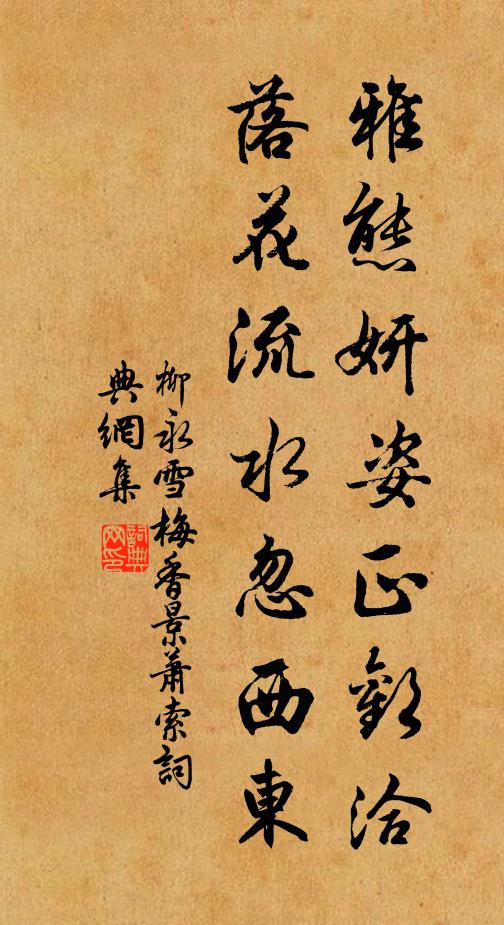 雅態妍姿正歡洽
落花流水忽西東
柳永雪梅香景蕭索詞
典網集
詞典
网印